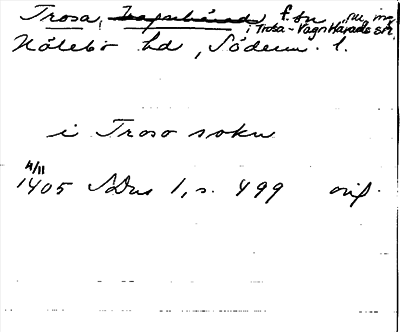 Trosa, Vagnhärad f. sn nu ing.
i Trosa-Vagnhärads sn
Hölebo hd, Söderm. l.
i Troso sokn
4/11
1405 SDns 1, s. 499 orig.